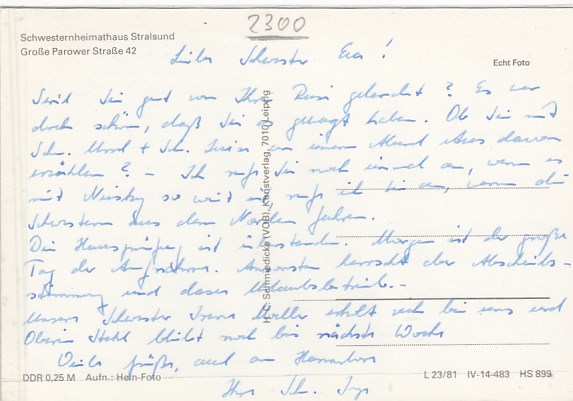 Schwesternheimathaus Stralsund
Große Parower Straße 42
2300
Liebe Schwester Eva!
Echt Foto
Sind Sie gut von Ihrer Reise ? Es war
doch schön, daß Sie gewagt haben. Ob Sie und
Schw. + Schw. an einem Abend etwas davon
erzählen? - Ich rufe Sie noch einmal an, wenn es
mit Niesky so weit ist, rufe ich Sie an, wenn die
Schwestern aus dem Norden fahren.
Die Hausprüfung ist überstanden. Morgen ist der große
Tag der Aufnahme. Ansonsten herrscht der Abschieds-
stimmung und dieser Urlaubsbetrieb.-
Unsere Schwester erholt sich bei uns und
Oberin bleibt noch bis nächste Woche
Viele Grüße, auch an
Ihre Schw.
H. C. Schmiedicke (VOB), Kunstverlag, 7010 Leipzig
DDR 0,25 M Aufn.: Hein-Foto
L 23/81 IV-14-483 HS 899